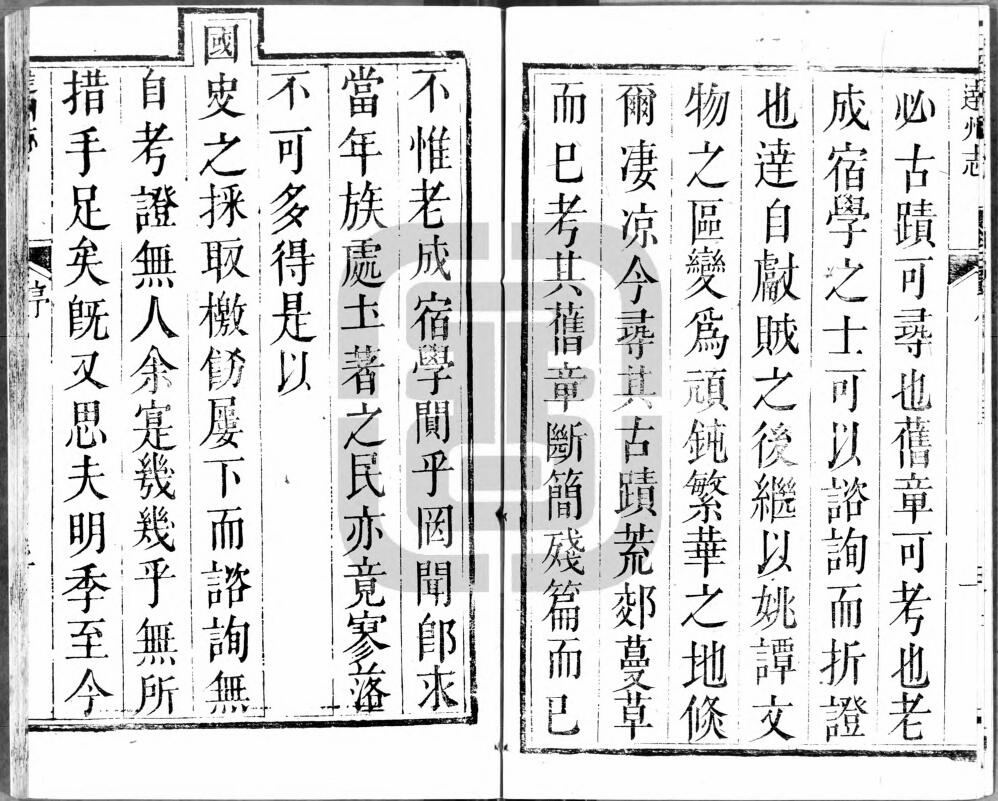 達州志
必古蹟可尋也舊章可考也老
成宿學之士可以諮詢而折證
也達自獻賊之後繼以姚譚文
物之區變爲頑鈍繁華之地倏
爾凄凉今尋其古蹟荒郊蔓草
而已考其舊章斷簡殘篇而已
不惟老成宿學闃乎罔聞卽求
當年族處土著之民亦竟寥落
不可多得是以
國史之採取檄飭屢下而諮詢無
自考證無人余寔幾幾乎無所
措手足矣旣又思夫明季至今
序